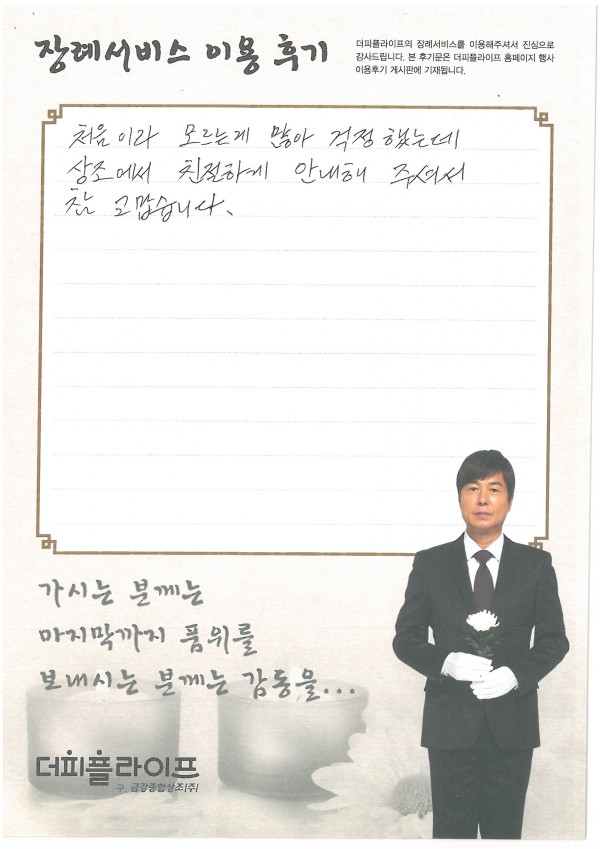 장례서비스 이용 후기
더피플라이프의 장례서비스를 이용해주셔서 진심으로
감사드립니다. 본 후기문은 더피플라이프 홈페이지 행사
이용후기 게시판에 기재됩니다.
처음이라 모르는게 많아 걱정했는데
상조에서 친절하게 안내해 주셔서
참 고맙습니다.
가시는 분께는
마지막까지 품위를
보내시는 분께는 감동을...
더피플라이프
구. 금강종합상조(주)